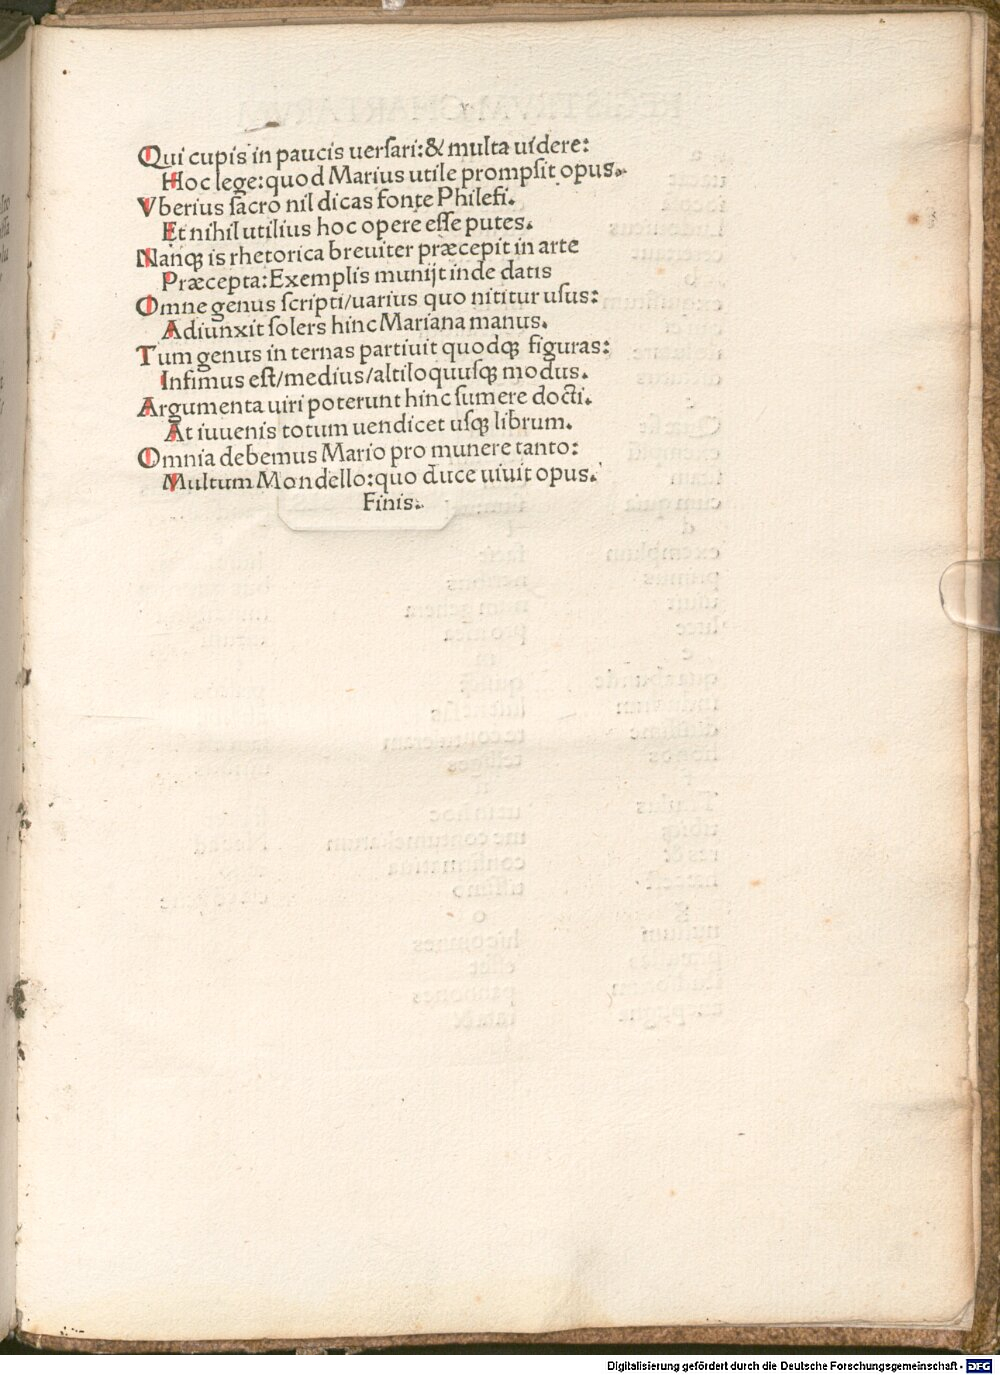 Qui cupis in paucis uerſari:& multa uidere:
Hoc lege:quod Marius utile prompſit opus.
Vberius ſacro nil dicas fonte Philefi.
Et nihil utilius hoc opere eſſe putes.
Nanqꝫ is rhetorica breuiter præcepit in arte
Præcepta:Exemplis munijt inde datis
Omne genus ſcripti/uarius quo nititur uſus:
Adiunxit ſolers hinc Mariana manus.
Tum genus in ternas partiuit quodqꝫ figuras:
Infimus eſt/medius/altiloquuſqꝫ modus.
Argumenta uiri poterunt hinc ſumere docti.
At iuuenis totum uendicet uſqꝫ librum.
Omnia debemus Mario pro munere tanto:
Multum Mondello:quo duce uiuit opus.
Finis.
Digitalisierung gefördert durch die Deutsche Forschungsgemeinschaft - DFG